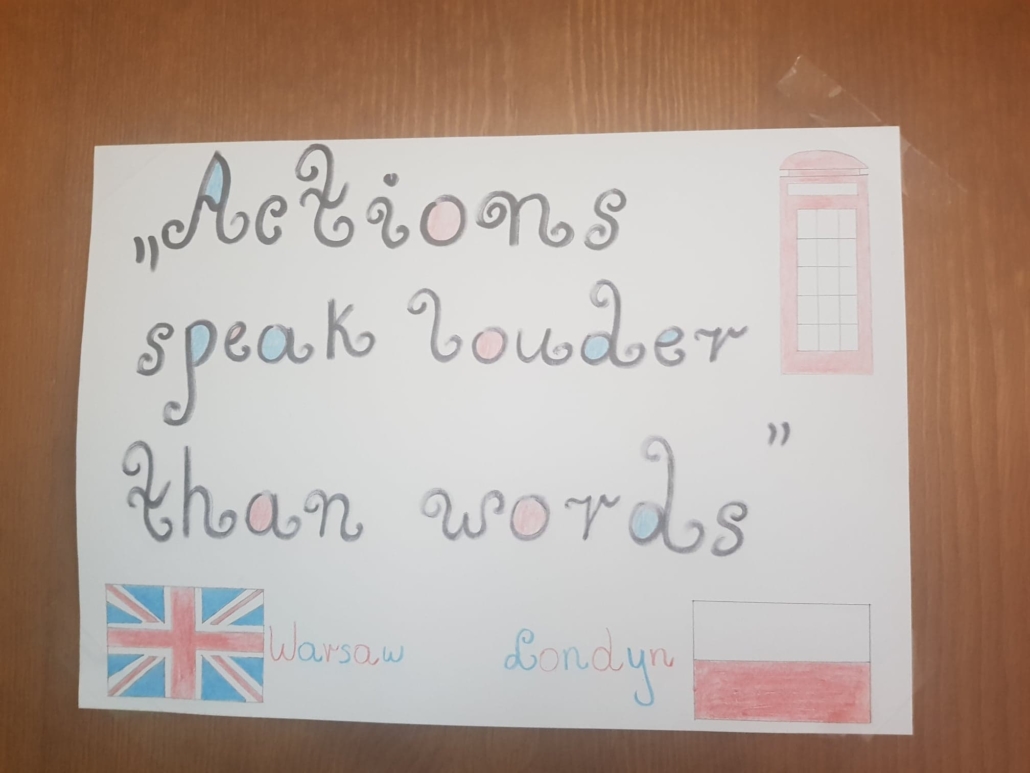 „Actions
speak louder
than words”
Warsaw Londyn